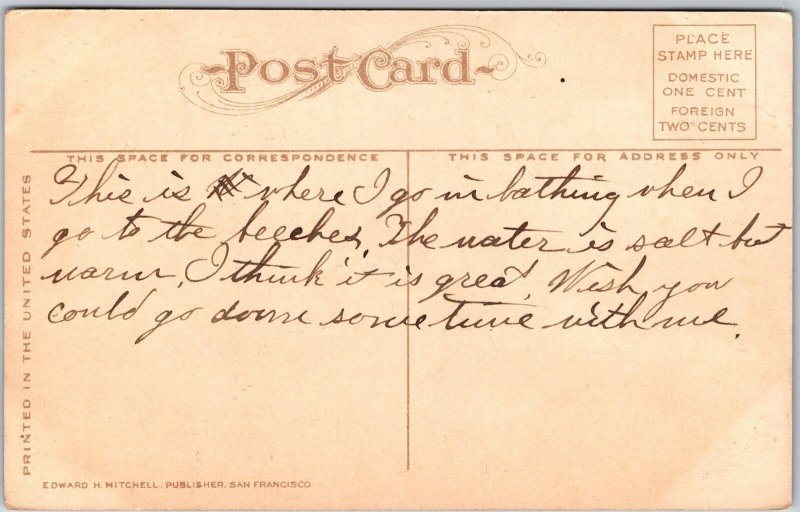 Post Card
PLACE
STAMP HERE
DOMESTIC
ONE CENT
FOREIGN
TWO CENTS
THIS SPACE FOR CORRESPONDENCE
THIS SPACE FOR ADDRESS ONLY
This is where I go in bathing when I
go to the beeches. The water is salt but
warm. I think it is great. Wish you
could go down sometime with me.
PRINTED IN THE UNITED STATES
EDWARD H. MITCHELL, PUBLISHER, SAN FRANCISCO.